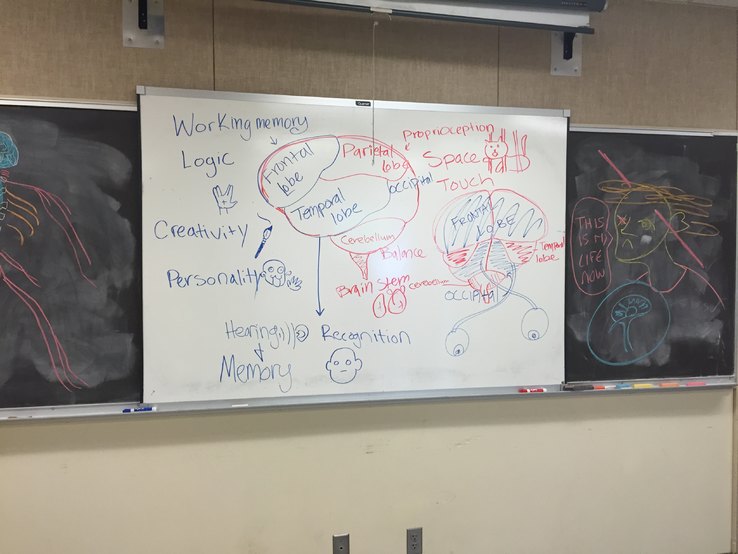 Working memory
Logic
Creativity
Personality
Frontal
lobe
Parietal
lobe
Temporal
lobe
occipital
Cerebellum
Balance
Brain stem
Hearing
Memory
Recognition
Proprioception
Space
Touch
FRONTAL
LOBE
Temporal
lobe
cerebellum
OCCIPITAL
THIS
IS MY
LIFE
NOW